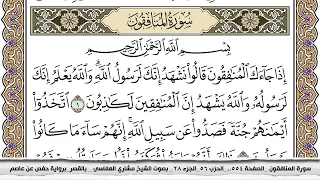 سُورَةُ المُنَافِقُونَ
بِسْمِ اللَّهِ الرَّحْمَٰنِ الرَّحِيمِ
إِذَا جَآءَكَ الْمُنَافِقُونَ قَالُوا نَشْهَدُ إِنَّكَ لَرَسُولُ اللَّهِ وَاللَّهُ يَعْلَمُ إِنَّكَ
لَرَسُولُهُ وَاللَّهُ يَشْهَدُ إِنَّ الْمُنَافِقِينَ لَكَاذِبُونَ ١ اتَّخَذُوا
أَيْمَانَهُمْ جُنَّةً فَصَدُّوا عَن سَبِيلِ اللَّهِ إِنَّهُمْ سَآءَ مَا كَانُوا
سورة المنافقون الصفحة ٥٥٤ الحزب ٥٦ الجزء ٢٨ بصوت الشيخ مشاري العفاسي بالقصر برواية حفص عن عاصم